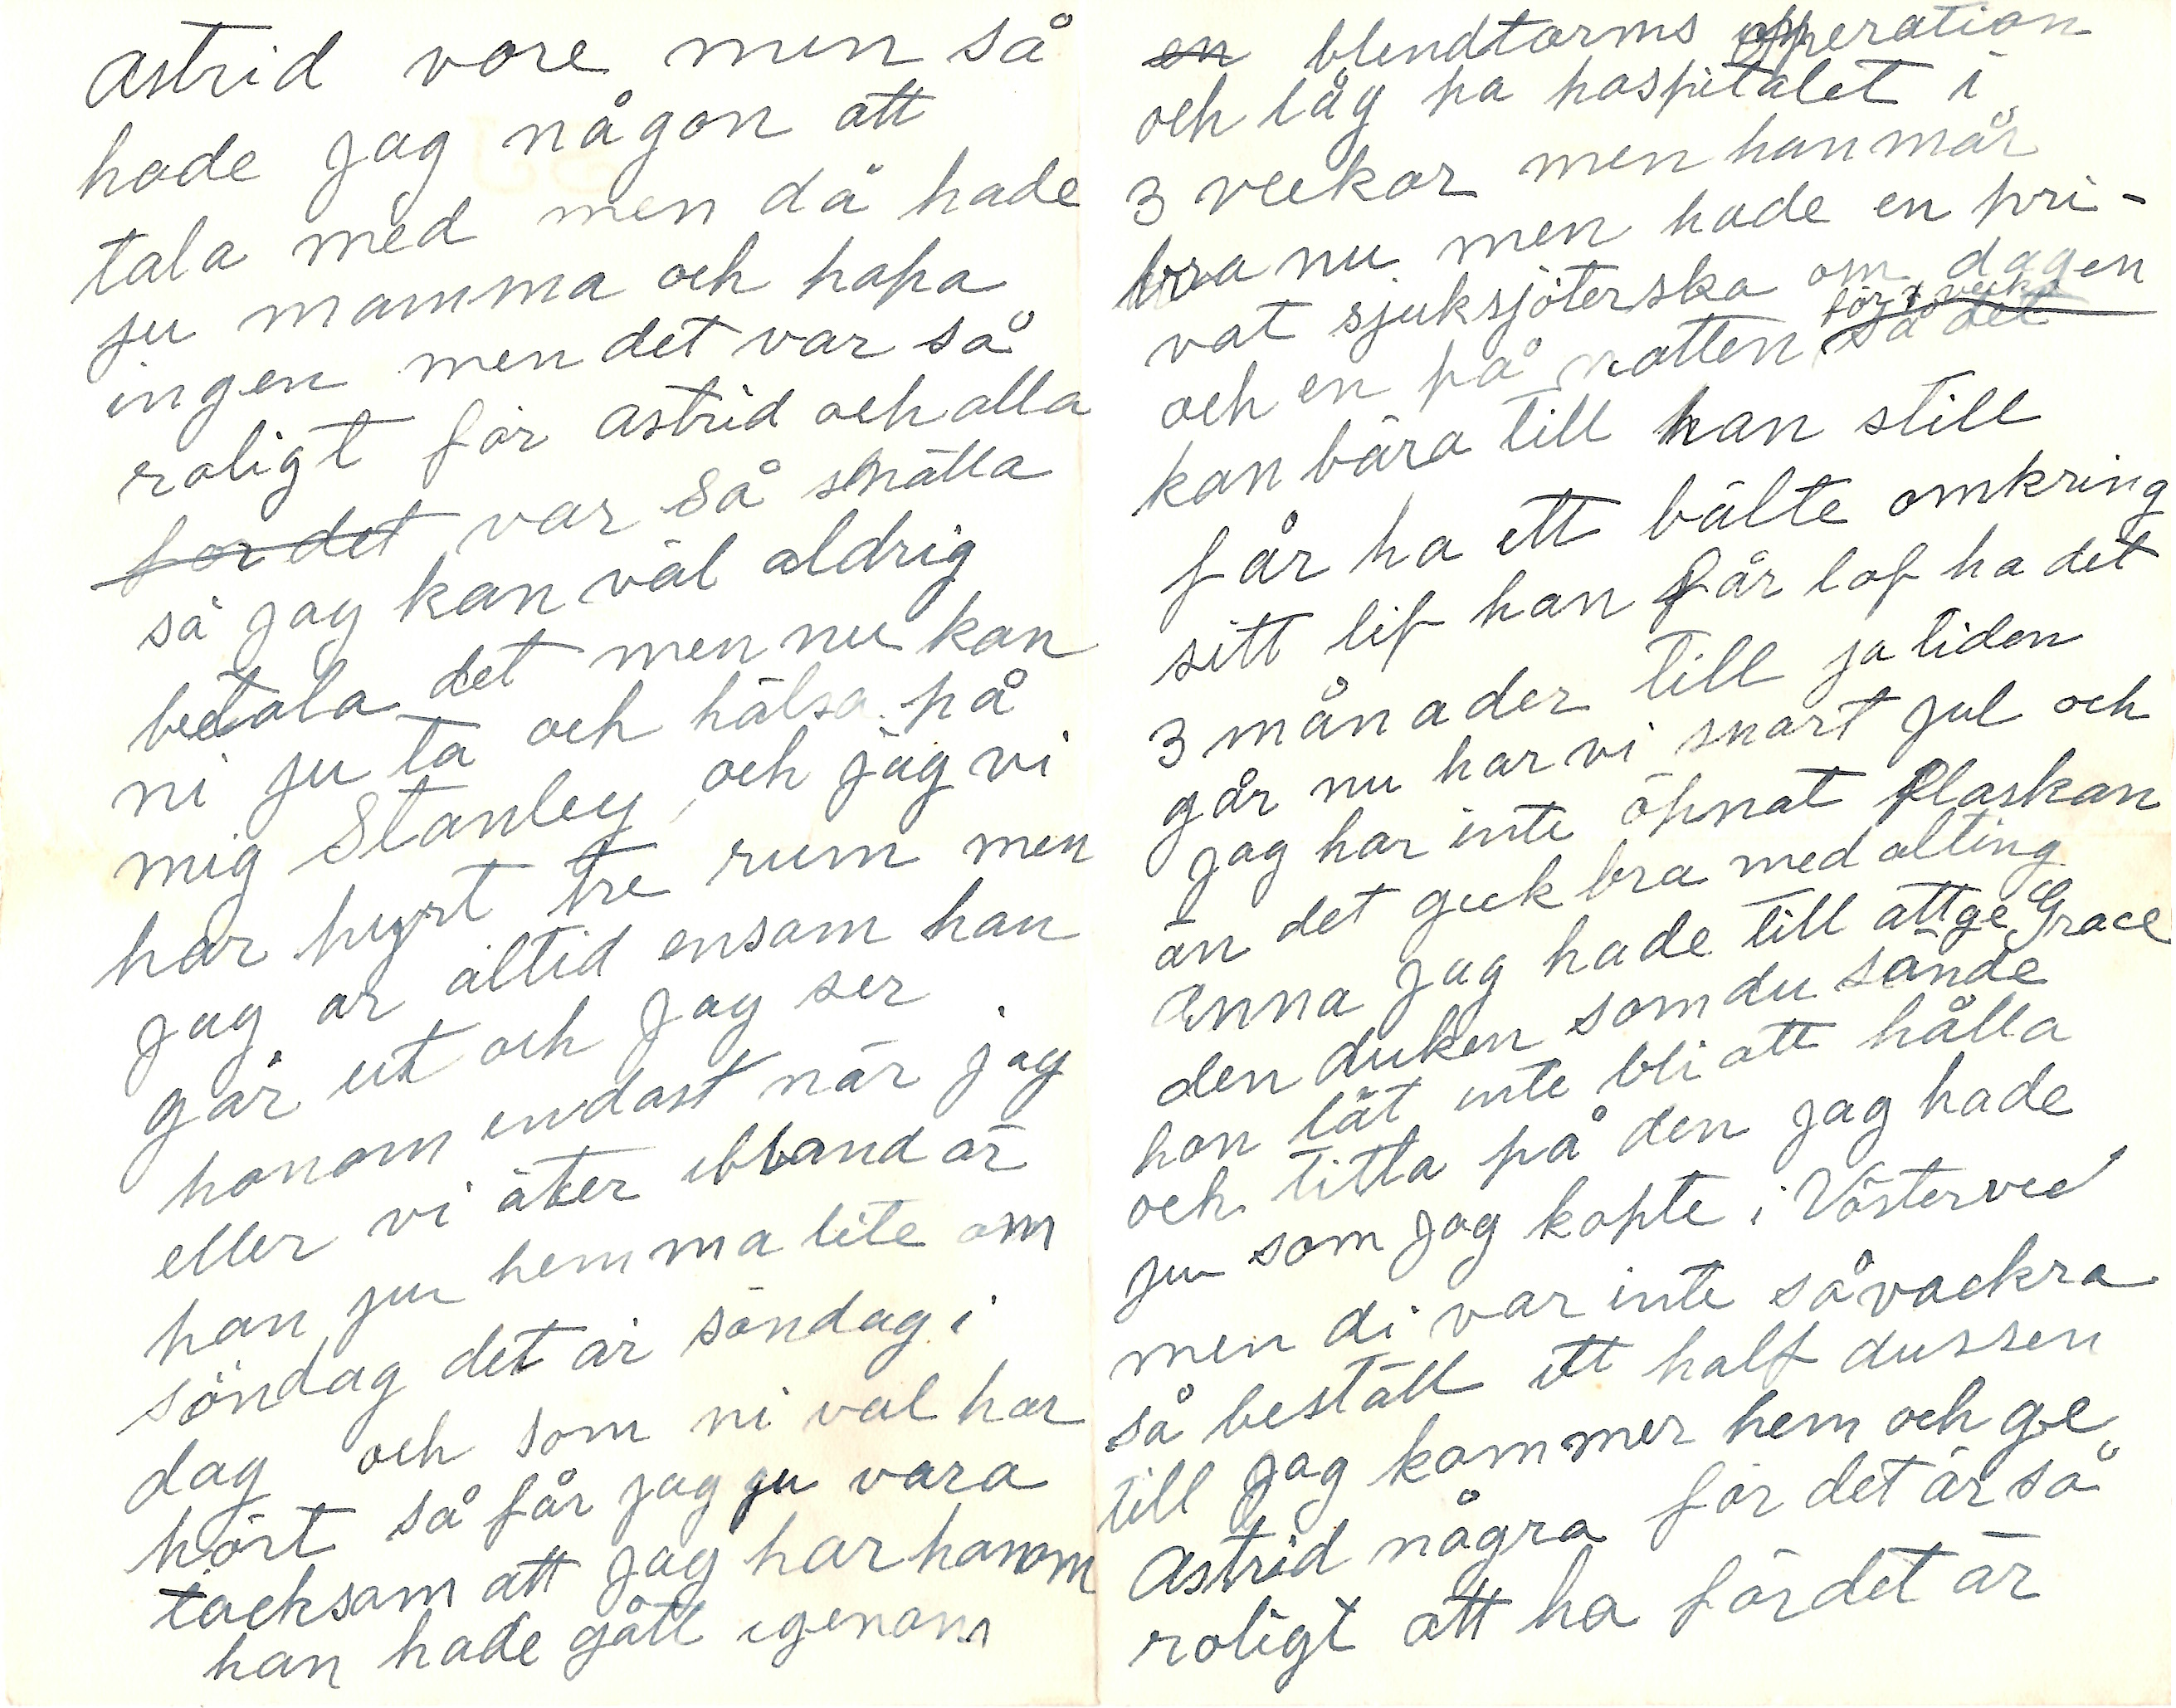 Astrid vore men så
hade jag någon att
tala med men då hade
ju mamma och papa
ingen men det var så
roligt för Astrid och alla
för det var så snälla
så jag kan väl aldrig
betala det men nu kan
ni ju ta och hälsa på
mig Stanley och jag vi
har hyrt tre rum men
jag är altid ensam han
går ut och jag ser
honom endast när jag
eller vi äter ibland är
han ju hemma lite om
söndag det är söndag i
dag och som ni väl har
hört så får jag ju vara
tacksam att jag har honom
han hade gått igenom
en blendtarms opperation
och låg på hospitalet i
3 veckor men han mår
bra nu men hade en pri-
vat sjuksjöterska om dagen
och en på natten för 1 vecka så det
kan bära till han still
får ha ett bälte omkring
sitt lif han får lof ha det
3 månader till ja tiden
går nu har vi snart jul och
jag har inte öpnat flaskan
än det geck bra med alting
Anna jag hade till att ge Grace
den duken som du sände
hon lät inte bli att hålla
och titta på den jag hade
ju som jag köpte i Västerved
men di var inte så vackra
så beställ ett half dussen
till jag kommer hem och ge
Astrid några för det är så
roligt att ha för det är